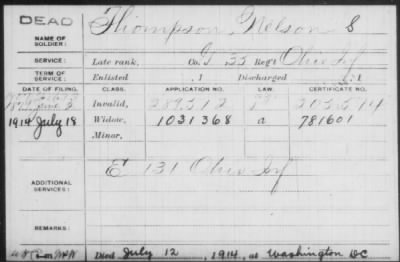 DEAD
NAME OF SOLDIER:
Thompson, Nelson S
SERVICE:
Late rank, Co. I 55 Reg't Ohio Inf
TERM OF SERVICE:
Enlisted , 1 Discharged , 1
DATE OF FILING. CLASS. APPLICATION NO. LAW. CERTIFICATE NO.
Invalid,
1914 July 18 Widow, 1031368 a 781601
Minor,
ADDITIONAL SERVICES:
E 131 Ohio Inf
REMARKS:
Died July 12, 1914, at Washington DC